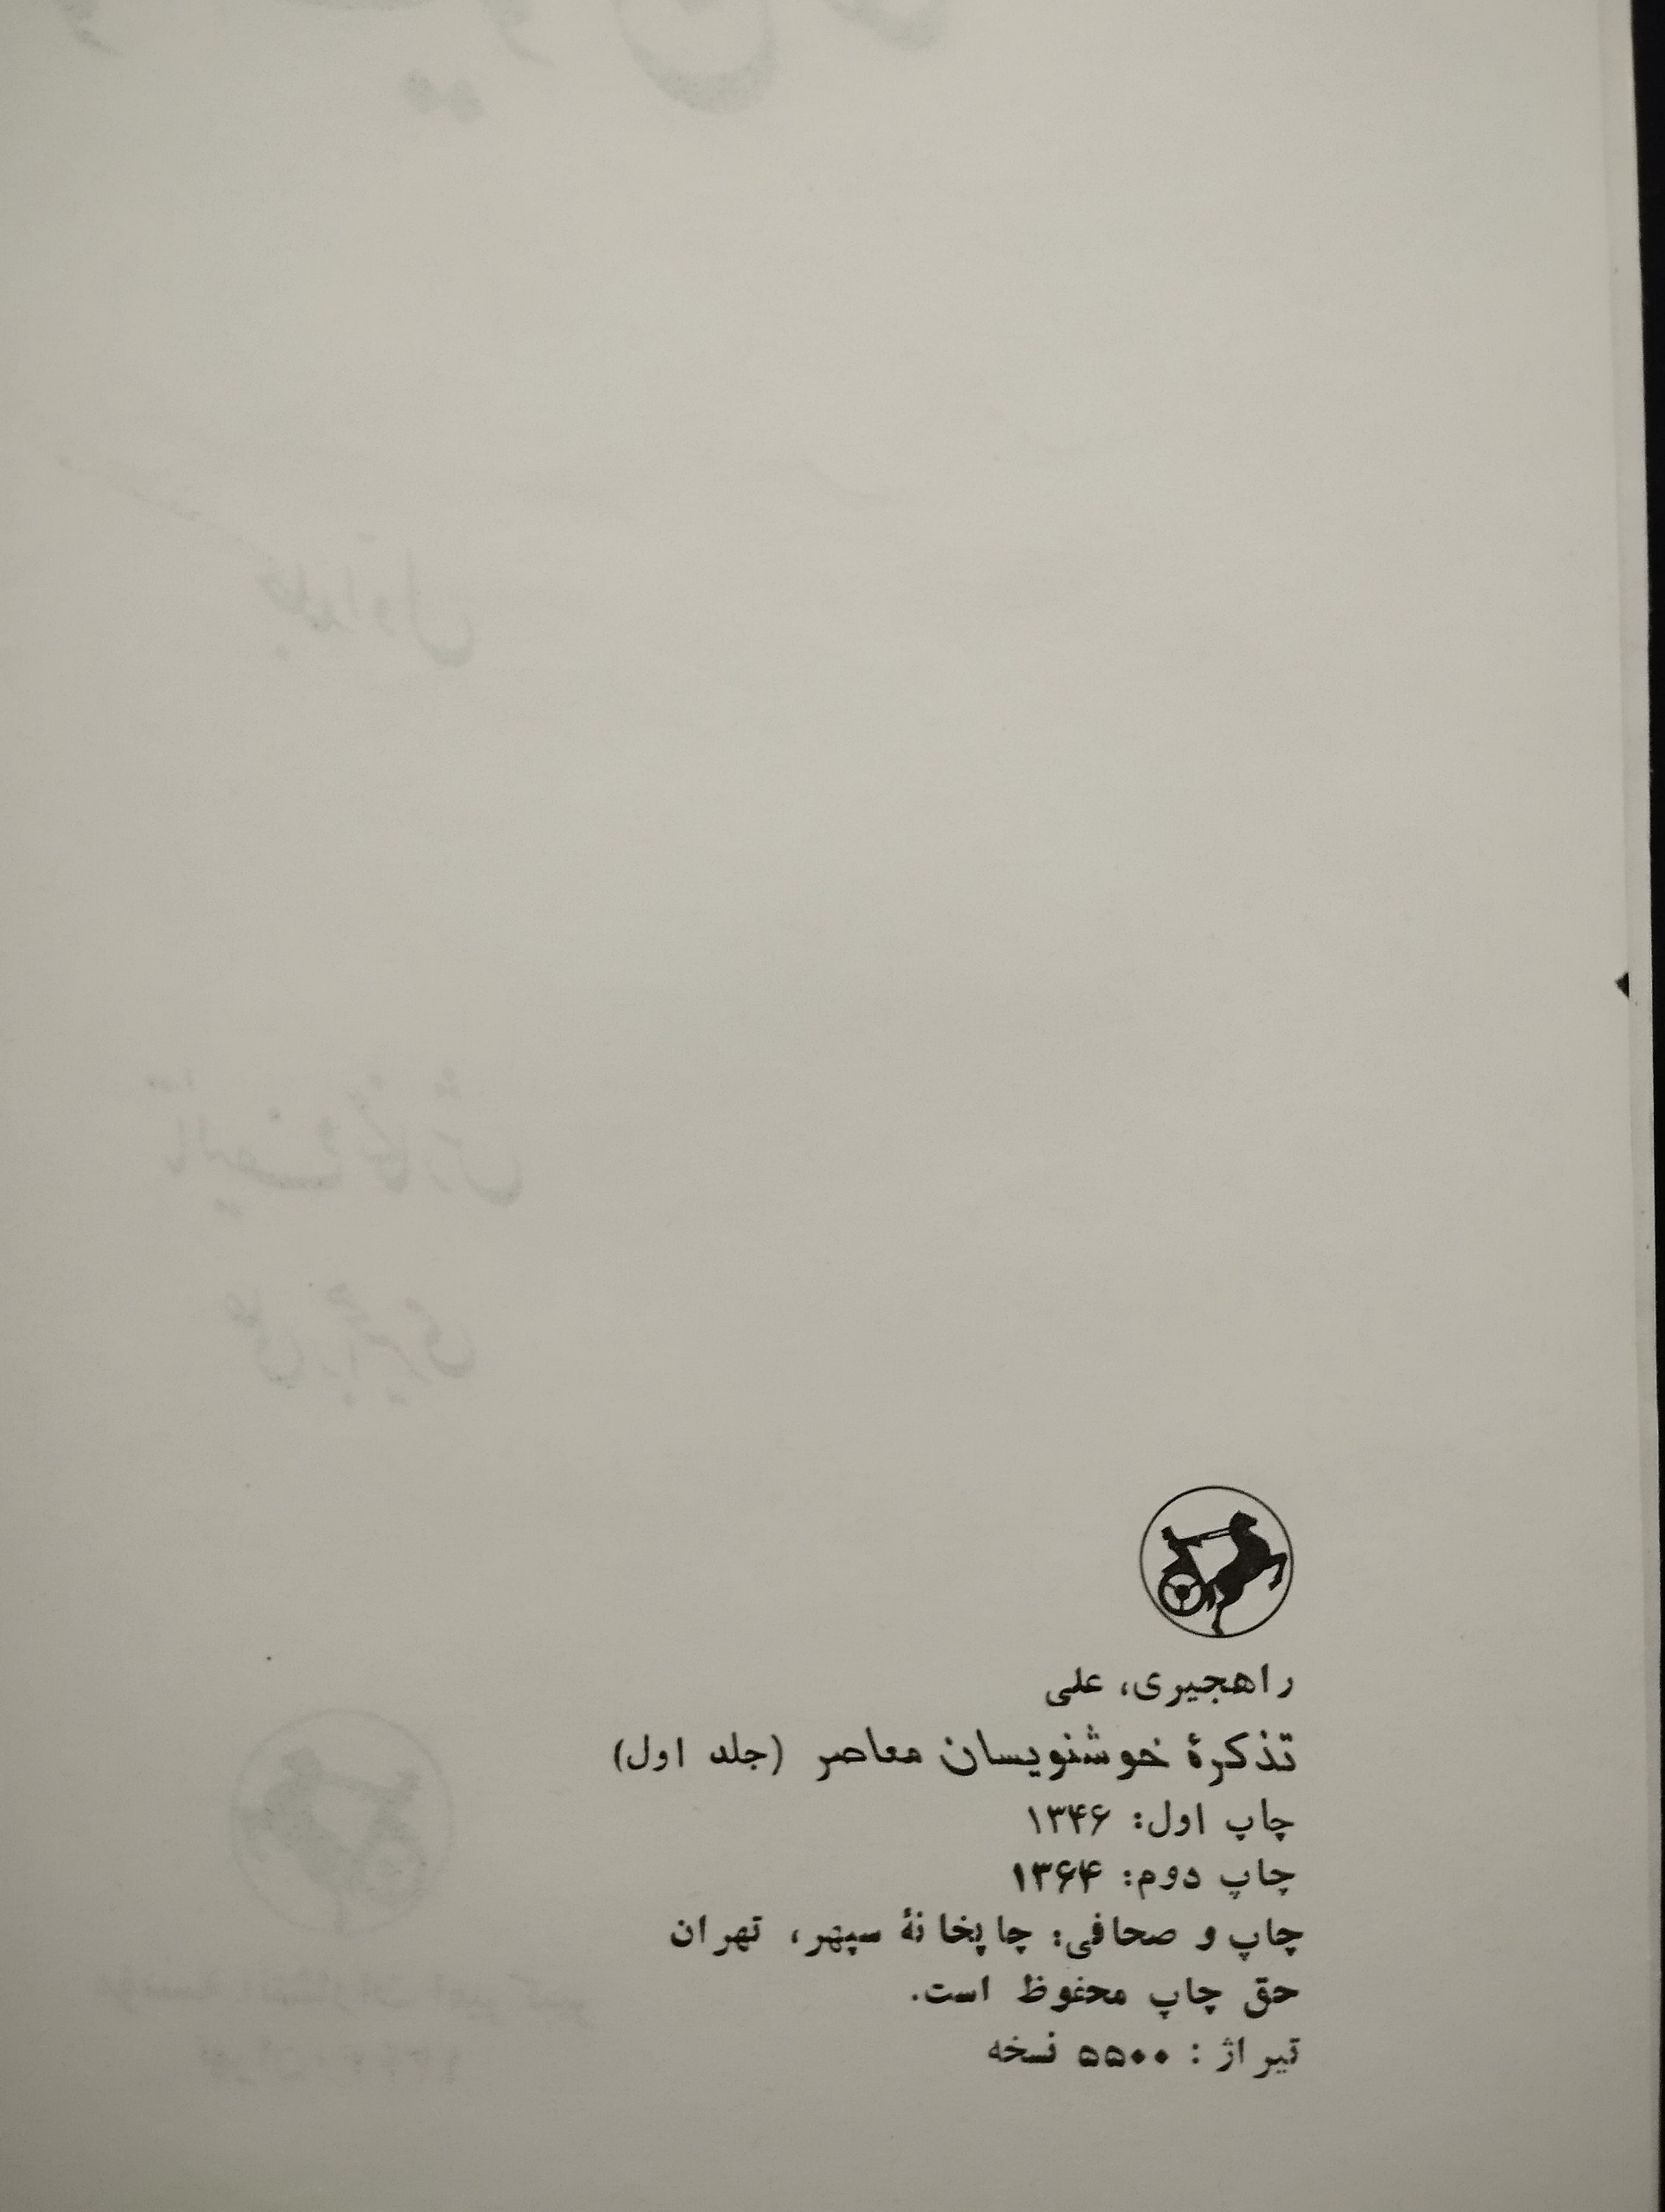 راهجیری، علی
تذکرهٔ خوشنویسان معاصر (جلد اول)
چاپ اول: ۱۳۴۶
چاپ دوم: ۱۳۶۴
چاپ و صحافی: چاپخانهٔ سپهر، تهران
حق چاپ محفوظ است.
تیراژ: ۵۵۰۰ نسخه